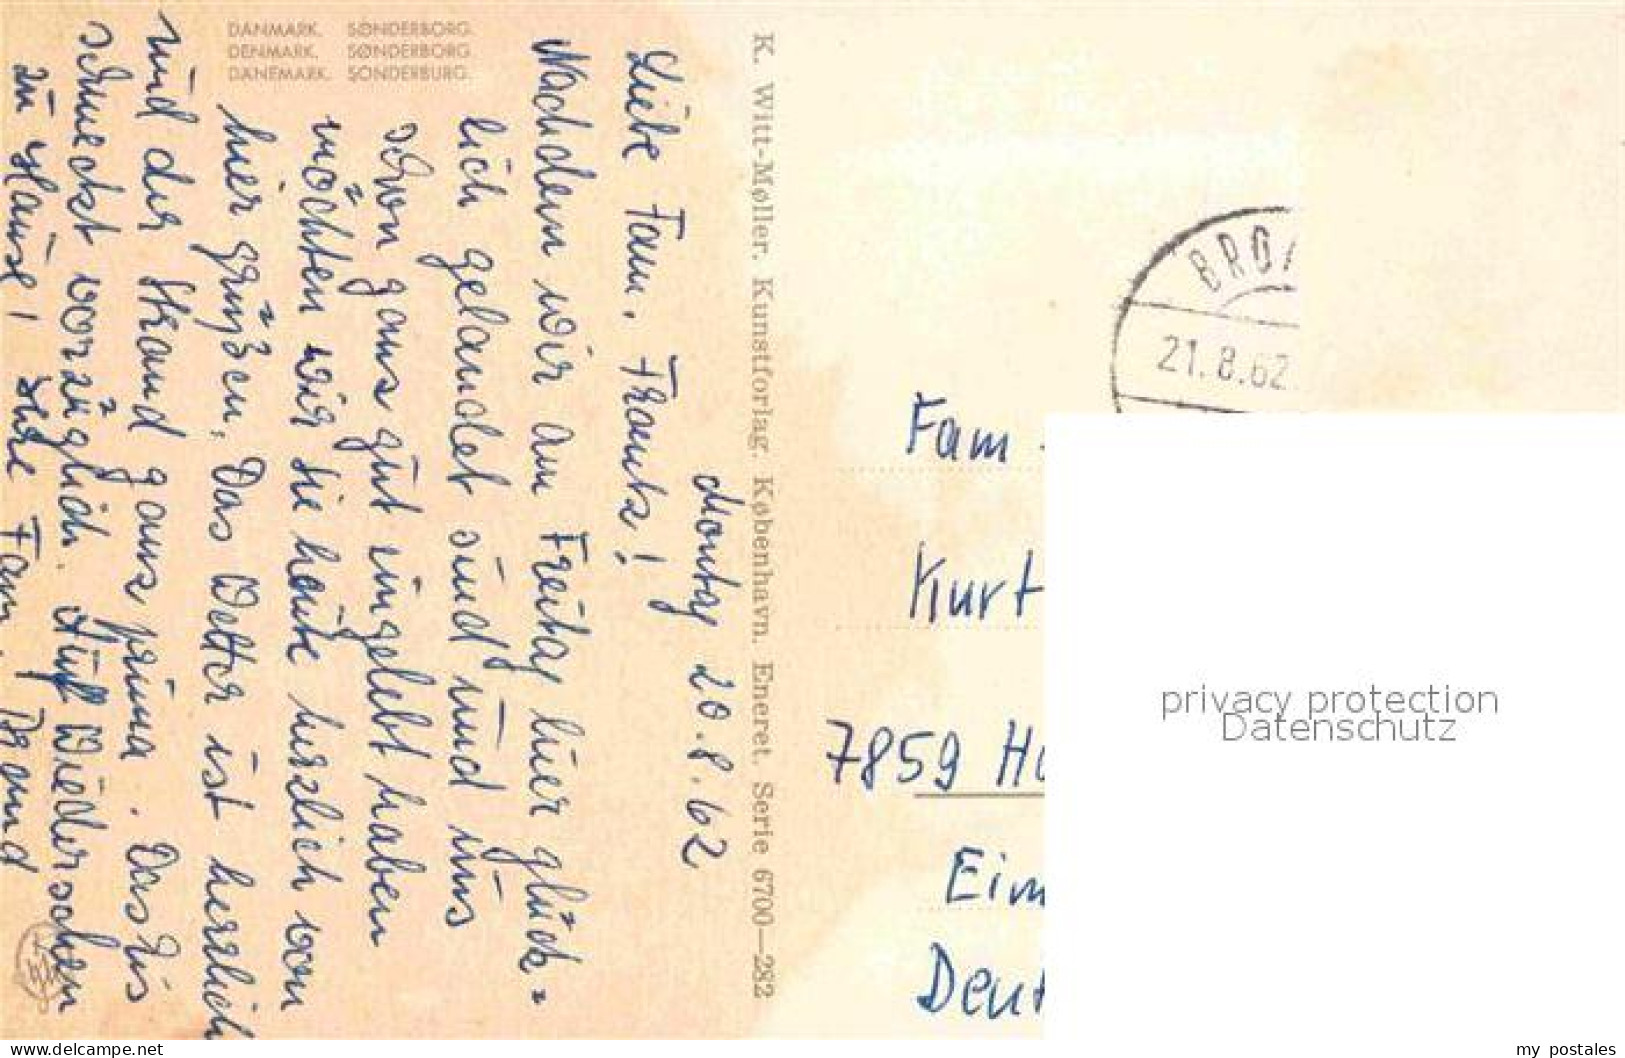 DANMARK. SØNDERBORG.
DENMARK. SØNDERBORG.
DÄNEMARK. SONDERBURG.
Montag 20.8.62
Liebe Fam. Frantz!
Nachdem wir am Freitag hier glück-
lich gelandet sind und uns
schon ganz gut eingelebt haben
möchten wir Sie heute herzlich von
hier grüßen. Das Wetter ist herrlich
und der Strand ganz prima. Das Eis
schmeckt vorzüglich. Auf Wiedersehen
zu Hause! Ihre Fam.
K. Witt-Møller. Kunstforlag. København. Eneret. Serie 6700—282
BRO
21.8.62.
Fam
Kurt
7859 Ha
Eim
Deut
privacy protection
Datenschutz
www.delcampe.net
my_postales